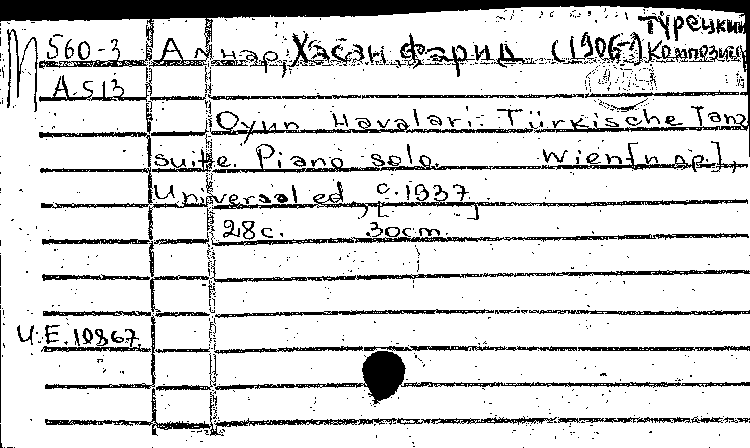 Турецкий
М 560-3 Алнар, Хасан, Фарид (1906-) Композитор
А513
Oyun Havalari. Türkische Tanz
suite. Piano solo. Wien [n.op.],
Universal ed., [c.1937]
28c. 30cm.
U.E.10867